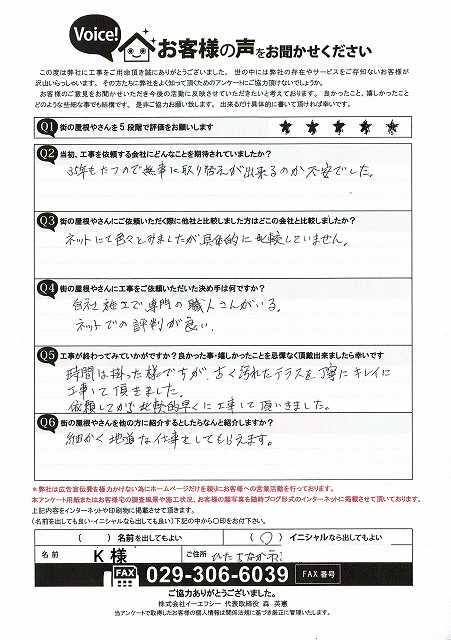 Voice!
お客様の声をお聞かせください
この度は弊社に工事をご用命頂き誠にありがとうございました。世の中には弊社の存在やサービスをご存知ないお客様が
沢山いらっしゃいます。その方たちに弊社をよく知って頂くためのアンケートにご協力頂けないでしょうか。
お客様のご意見をお聞かせいただき今後の活動に反映させていただきたいと考えております。良かったこと、嬉しかったこと
どのような些細な事でも結構です。是非ご協力お願い致します。出来るだけ具体的に書いて頂ければ幸いです。
Q1 街の屋根やさんを5段階で評価をお願いします ★ ★ ★ ★ ★
Q2 当初、工事を依頼する会社にどんなことを期待されていましたか?
35年もたつので無事に取り替えが出来るのか不安でした。
Q3 街の屋根やさんにご依頼いただく際に他社と比較しました方はどこの会社と比較しましたか?
ネットにて色々とみましたが具体的に比較していません。
Q4 街の屋根やさんに工事をご依頼いただいた決め手は何ですか?
自社施工で専門の職人さんがいる。
ネットでの評判が良い。
Q5 工事が終わってみていかがですか?良かった事・嬉しかったことを忌憚なく頂戴出来ましたら幸いです
時間は掛った様ですが、古く汚れたテラスを丁寧にキレイに
工事して頂きました。
依頼してから比較的早くに工事して頂いきました。
Q6 街の屋根やさんを他の方に紹介するとしたらなんと紹介しますか?
細かく地道な仕事をしてもらえます。
*弊社は広告宣伝費を極力かけない為にホームページだけを頼りにお客様への営業活動を行っております。
本アンケート用紙またはお客様宅の調査風景や施工状況、お客様の顔写真を随時ブログ形式のインターネットに掲載させて頂いております。
上記内容をインターネットや印刷物に掲載させて頂きます。
(名前を出しても良い・イニシャルなら出しても良い)下記の中から〇印をお付下さい。
( ) 名前を出してもよい (〇) イニシャルなら出してもよい
名前 K様 ご住所 ひたちなか市
FAX 029-306-6039 FAX番号
ご協力ありがとうございました。
株式会社イーエフシー 代表取締役 森 英憲
当アンケートで取得したお客様の個人情報は関係法規に基づき厳正に管理いたします。